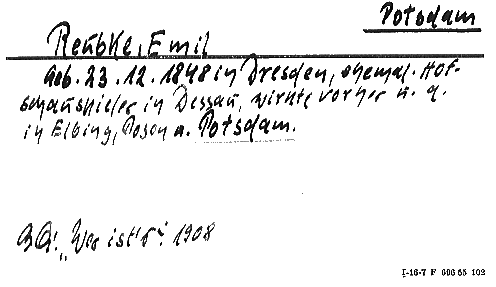 Potsdam
Reubke, Emil
Geb. 23.12.1848 in Dresden, ehemal. Hof-
schauspieler in Dessau, wirkte vorher u. a.
in Elbing, Posen u. Potsdam.
BQ: „Wer ist's": 1908
I-16-7 F 606 65 102